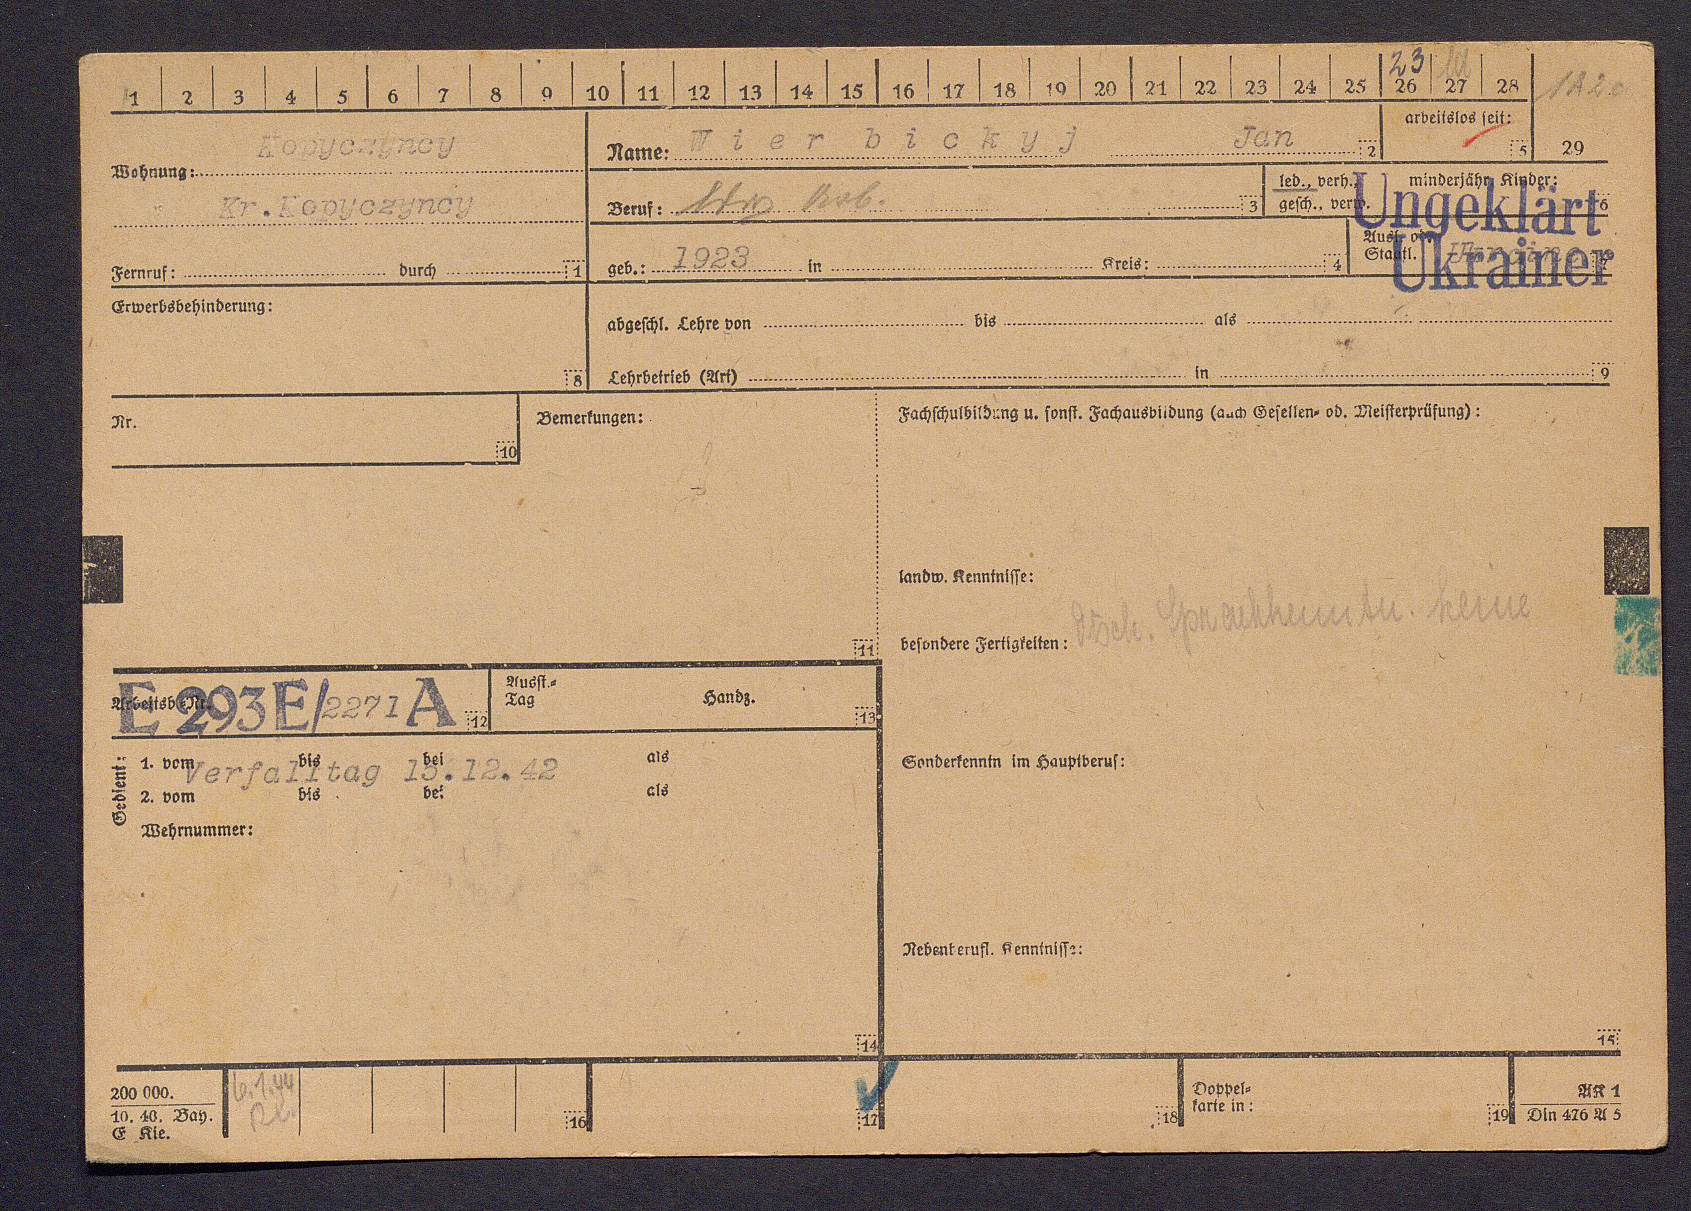 23
1 2 3 4 5 6 7 8 9 10 11 12 13 14 15 16 17 18 19 20 21 22 23 24 25 26 27 28
Wohnung: Kopyczyncy
Kr. Kopyczyncy
Fernruf: durch 1
Name: Wierbickyj Jan 2
arbeitslos seit: 5 29
Beruf: Arb. 3
led., verh., gesch., verw.
minderjähr. Kinder: 6
geb.: 1923 in Kreis: 4
Ausl. od. Staatl. 7
Ungeklärt
Ukrainer
Erwerbsbehinderung: 8
abgeschl. Lehre von bis als
Lehrbetrieb (Art) in 9
Nr. 10
Bemerkungen: 11
Fachschulbildung u. sonst. Fachausbildung (auch Gesellen- od. Meisterprüfung):
landw. Kenntnisse:
besondere Fertigkeiten: Dtsch. Sprachkenntn. keine
Arbeitsb.-Nr. E 293 E/2271 A 12
Ausst.-Tag Handz. 13
Gedient:
1. vom bis bei als
Verfalltag 15.12.42
2. vom bis bei als
Wehrnummer:
14
Sonderkenntn im Hauptberuf:
Nebenberufl. Kenntnisse:
15
200 000.
10. 40. Bay.
E Kie.
6.1.44
16 17 18
Doppel-
karte in: 19
AK 1
Din 476 A 5